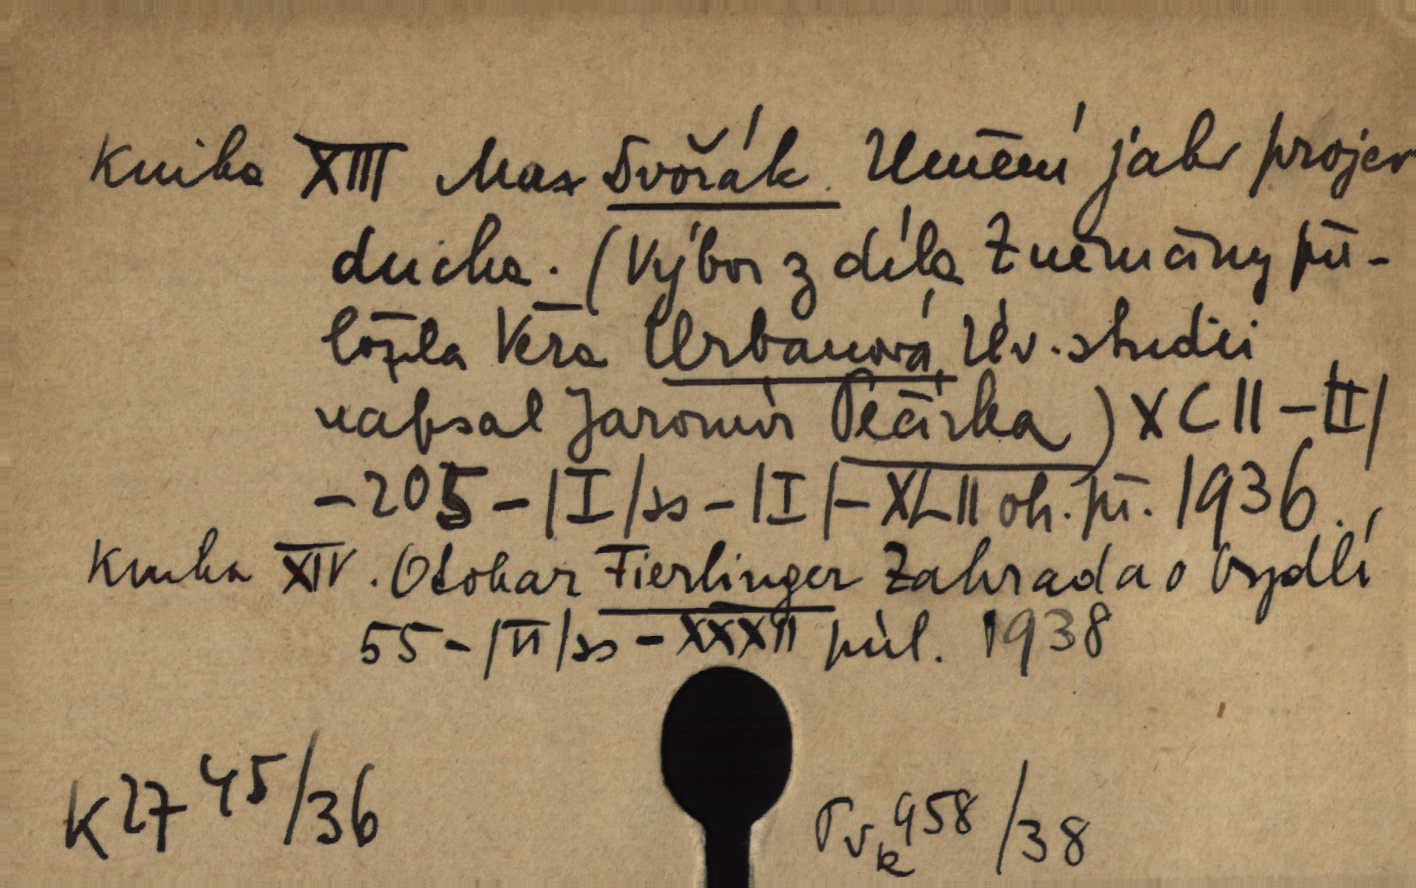 Kniha XIII Max Dvořák. Umění jako projev
ducha. (Výbor z díla z němčiny pře-
ložila Věra Urbanová, Úv. studii
napsal Jaromír Pečírka) XCII-|II|
-205-|I|ss-|I|-XLII ob. př. 1936.
Kniha XIV. Otokar Fierlinger Zahrada a obydlí
55-|II|ss-XXXII příl. 1938
K 27 45/36
958/38